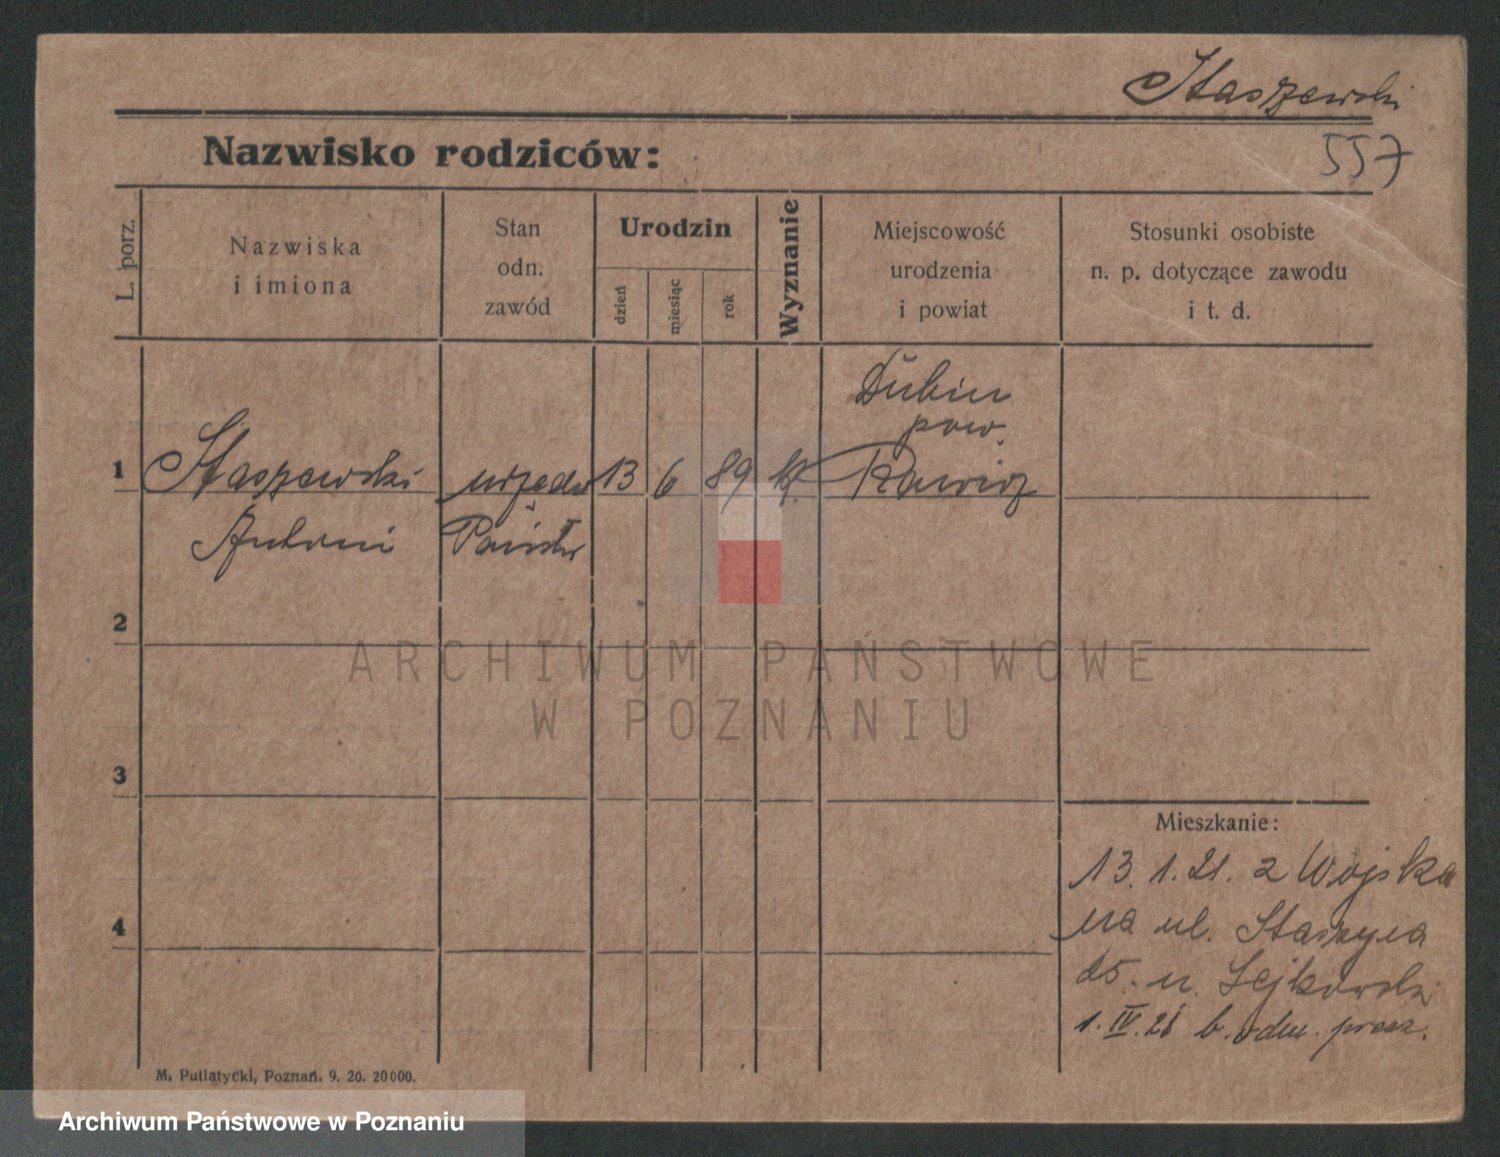 Staszewski
557
Nazwisko rodziców:
L. porz.
Nazwiska
i imiona
Stan
odn.
zawód
Urodzin
dzień
miesiąc
rok
Wyznanie
Miejscowość
urodzenia
i powiat
Stosunki osobiste
n. p. dotyczące zawodu
i t. d.
Dubin
pow.
1 Staszewski urzędn 13 6 89 kt. Rawicz
Antoni Państw
2
ARCHIWUM PAŃSTWOWE
W POZNANIU
3
Mieszkanie:
13. 1. 21. z Wojska
na ul. Staszyca
25. u. Sejkowski
4
1. IV. 21 b. odm. przez.
M. Putiatycki, Poznań. 9. 20. 20000.
Archiwum Państwowe w Poznaniu